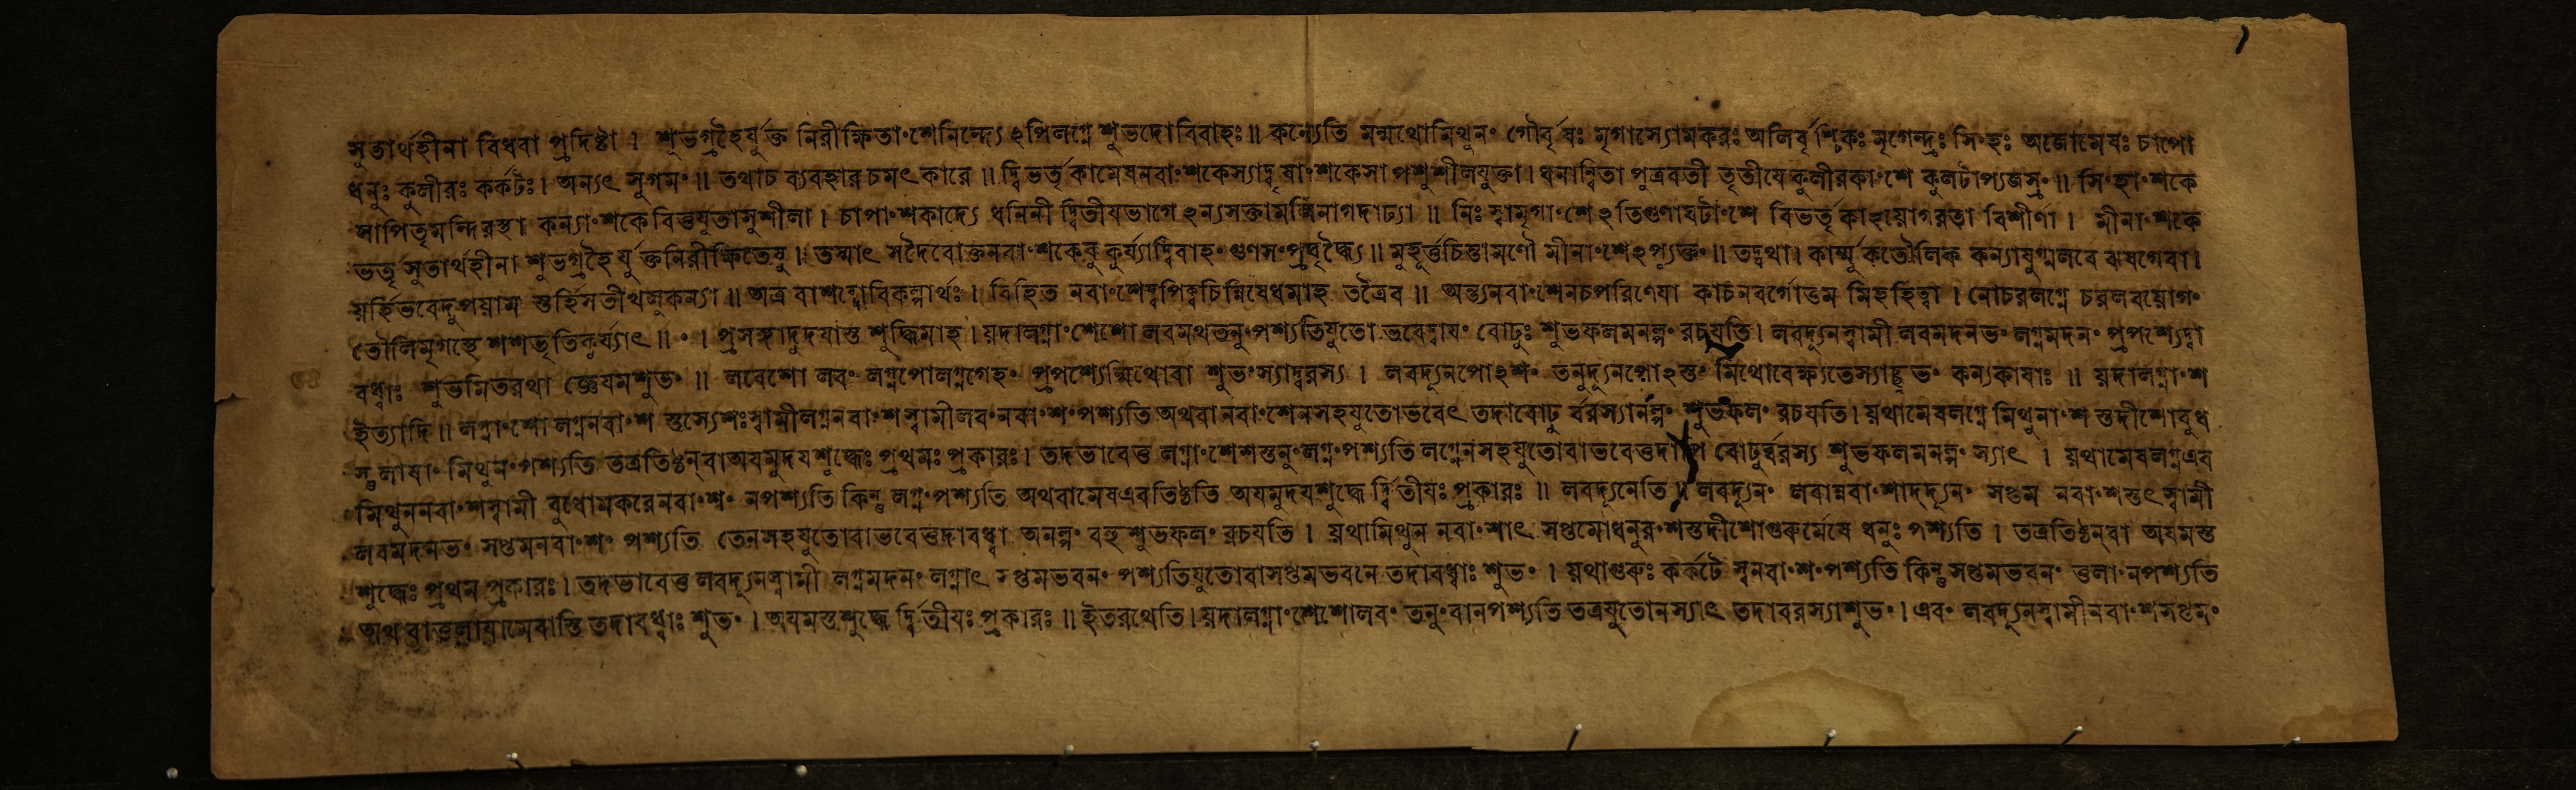 সুতার্থহীনা বিধবা প্রদিষ্টা । শুভগ্রহৈর্যুক্ত নিরীক্ষিতাংশেনিন্দ্যেঽপিলগ্নে শুভদোবিবাহঃ ॥ কন্যেতি মন্মথোমিথুনং গৌর্বৃষঃ মৃগাস্যোমকরঃ অলির্বৃশ্চিকঃ মৃগেন্দ্রঃ সিংহঃ অজোমেষঃ চাপো
ধনুঃ কুলীরঃ কর্কটঃ । অন্যৎ সুগমং ॥ তথাচ ব্যবহার চমৎকারে ॥ দ্বিভর্তৃকামেষনবাংশকেস্যাদ্বৃষাংশকেসা পশুশীলযুক্তা । ধনান্বিতা পুত্রবতী তৃতীযেকুলীরকাংশে কুলটাপ্যজস্রং ॥ সিংহাংশকে
সাপিতৃমন্দিরস্থা কন্যাংশকেবিত্তযুতাসুশীলা । চাপাংশকাদ্যে ধনিনী দ্বিতীযভাগেঽন্যসক্তামলিনাগদাঢ্যা ॥ নিঃস্বামৃগাংশেঽতিগুণাঘটাংশে বিভর্তৃকাঽযোগরতা বিশীর্ণা । মীনাংশকে
ভর্তৃসুতার্থহীনা শুভগ্রহৈ র্যুক্তনিরীক্ষিতেষু । তস্মাৎ সদৈবোক্তনবাংশকেষু কুর্য্যাদ্বিবাহং গুণসংপ্রবৃদ্ধ্যৈ ॥ মুহূর্ত্তচিন্তামণৌ মীনাংশেঽপ্যুক্তং ॥ তদ্যথা । কার্ম্মুকতৌলিক কন্যাযুগ্মলবে ঝষগেবা ।
যর্হিভবেদুপযাম স্তর্হিসতীখলুকন্যা ॥ অত্র বাশব্দোবিকল্পার্থঃ । বিহিত নবাংশেষ্বপিক্বচিন্নিষেধমাহ তত্রৈব ॥ অন্ত্যনবাংশেনচপরিণেযা কাচনবর্গোত্তম মিহহিত্বা । নোচরলগ্নে চরলবযোগং
তৌলিমৃগস্থে শশভৃতিকুর্য্যাৎ ॥ ং । প্রসঙ্গাদুদযাস্ত শুদ্ধিমাহ । যদালগ্নাংশেশো লবমথতনুংপশ্যতিযুতো ভবেদ্বাযং বোঢুঃ শুভফলমনল্পং রচযতি । লবদ্যূনস্বামী লবমদনভং লগ্নমদনং প্রপশ্যেদ্বা
বধ্বাঃ শুভমিতরথা জ্ঞেযমশুভং ॥ লবেশো লবং লগ্নপোলগ্নগেহং প্রপশ্যেন্মিথোবা শুভংস্যাদ্বরস্য । লবদ্যূনপোঽংশং তনুদ্যূনপোঽস্তং মিথোবেক্ষ্যতেস্যাচ্ছুভং কন্যকাযাঃ ॥ যদালগ্নাংশ
ইত্যাদি ॥ লগ্নাংশো লগ্ননবাংশ স্তস্যেশঃস্বামীলগ্ননবাংশস্বামীলবংনবাংশংপশ্যতি অথবানবাংশেনসহযুতোভবেৎ তদাবোঢু র্বরস্যানল্পং শুভফলং রচযতি । যথামেষলগ্নে মিথুনাংশ স্তদীশোবুধ
স্তুলাযাং মিথুনংপশ্যতি তত্রতিষ্ঠন্বাঅযমুদযশুদ্ধেঃ প্রথমঃ প্রকারঃ । তদভাবেত্ত লগ্নাংশেশস্তনুংলগ্নংপশ্যতি লগ্নেনসহযুতোবাভবেত্তদাপি বোঢুর্ব্বরস্য শুভফলমনল্পং স্যাৎ । যথামেষলগ্নএব
মিথুননবাংশস্বামী বুধোমকরেনবাংশং নপশ্যতি কিন্তু লগ্নংপশ্যতি অথবামেষএবতিষ্ঠতি অযমুদযশুদ্ধে র্দ্বিতীযঃ প্রকারঃ ॥ লবদ্যূনেতি ॥ লবদ্যূনং লবান্নবাংশাদ্দ্যূনং সপ্তম নবাংশস্তৎস্বামী
লবমদনভং সপ্তমনবাংশং পশ্যতি তেনসহযুতোবাভবেত্তদাবধ্বা অনল্পং বহু শুভফলং রচযতি । যথামিথুন নবাংশাৎ সপ্তমোধনুরংশস্তদীশোগুরুর্মেষে ধনুঃ পশ্যতি । তত্রতিষ্ঠন্বা অযমস্ত
শুদ্ধেঃ প্রথম প্রকারঃ । তদভাবেত্ত লবদ্যূনস্বামী লগ্নমদনং লগ্নাৎ সপ্তমভবনং পশ্যতিযুতোবাসপ্তমভবনে তদাবধ্বাঃ শুভং । যথাগুরুঃ কর্কটে স্বনবাংশংপশ্যতি কিন্তুসপ্তমভবনং তুলাংনপশ্যতি
অথ বাতুলাযামেবাস্তি তদাবধ্বাঃ শুভং । অযমস্তশুদ্ধে র্দ্বিতীযঃ প্রকারঃ ॥ ইতরথেতি । যদালগ্নাংশেশোলবং তনুংবানপশ্যতি তত্রযুতোনস্যাৎ তদাবরস্যাশুভং । এবং লবদ্যূনস্বামীনবাংশসপ্তমং